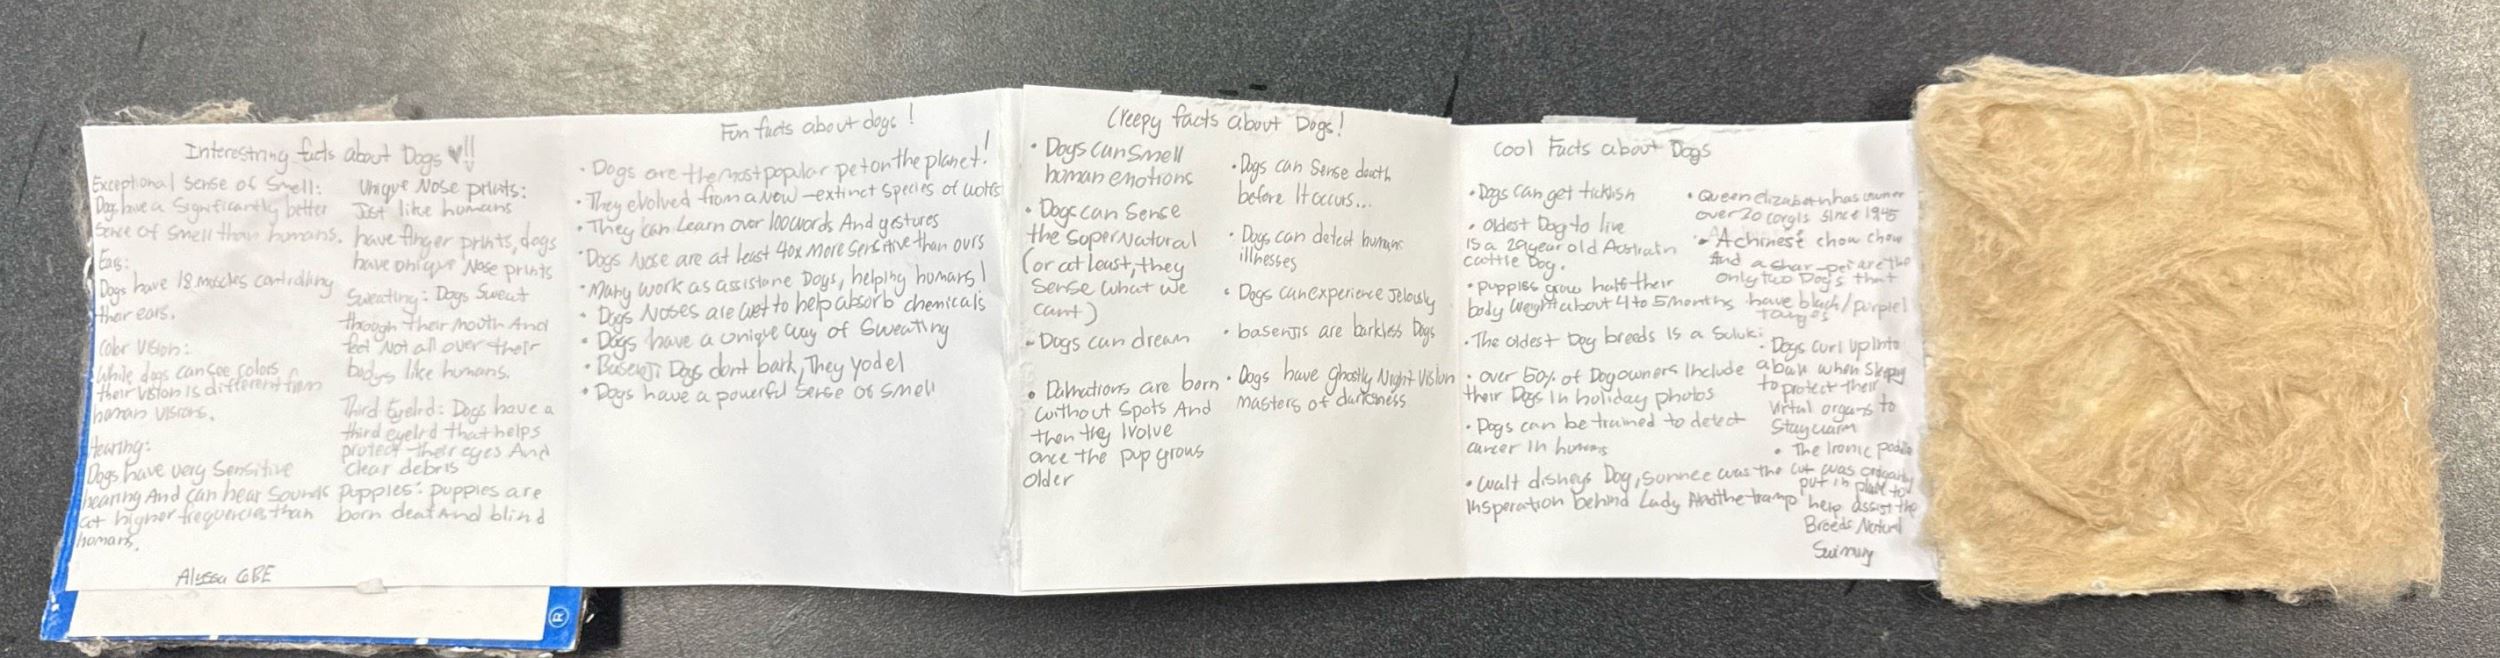 Interestring facts about Dogs ♥!!
Exceptional Sense of Smell:
Dogs have a Significantly better
Sence of Smell than humans.
Ears:
Dogs have 18 muscles controlling
their ears.
Color Vision:
While dogs can see colors
their vision is different from
human visions.
Hearing:
Dogs have very Sensitive
hearing And can hear Sounds
at higher frequencies than
homans.
Unique Nose prints:
Just like humans
have finger prints, dogs
have unique Nose prints
Sweating: Dogs Sweat
through their mouth And
feet Not all over their
bodys like humans.
Third Eyelid: Dogs have a
third eyelid that helps
protect their eyes And
Clear debris
Puppies: puppies are
born deaf And blind
Alyssa
Fun facts about dogs!
• Dogs are the most popular pet on the planet!
• They evolved from a Now-extinct species of wolfs
• They can Learn over 100 words And gestures
• Dogs Nose are at least 40x More Sensitive than ours
• Many work as assistane Dogs, helping humans!
• Dogs Noses are wet to help absorb chemicals
• Dogs have a Unique way of Sweating
• Basenji Dogs dont bark, They yodel
• Dogs have a powerful Sense of smell
Creepy facts about Dogs!
• Dogs can Smell
human emotions
• Dogs can Sense
the SuperNatural
(or at least, they
Sense what we
cant)
- Dogs can dream
• Dalmations are born
without Spots And
then they Ivolve
once the pup grows
older
• Dogs can Sense death
before It occurs...
• Dogs can detect humans
illnesses
• Dogs can experience Jelously
• basenjis are barkless Dogs
• Dogs have ghostly Night Vision
masters of darkness
Cool Facts about Dogs
• Dogs can get ticklish
• oldest Dog to live
is a 29 year old Australin
cattle Dog.
• puppies grow half their
body weight about 4 to 5 months
• The oldest Dog breeds Is a Saluki
• over 50% of Dog owners Include
their Dogs In holiday photos
• Dogs can be trained to detect
cancer in humans
• walt disneys Dog, Sunnee was the
Insperation behind Lady And the tramp
• Queen elizabeth has owner
over 20 corgis Since 1945
- A chinese chow chow
And a shar-pei are the
only two Dogs that
have black/purple
• Dogs curl up into
a ball when Sleepy
to protect their
Virtal organs to
Stay warm
• The Ironic poodle
cut was
put in place to
help assist the
Breeds Natural